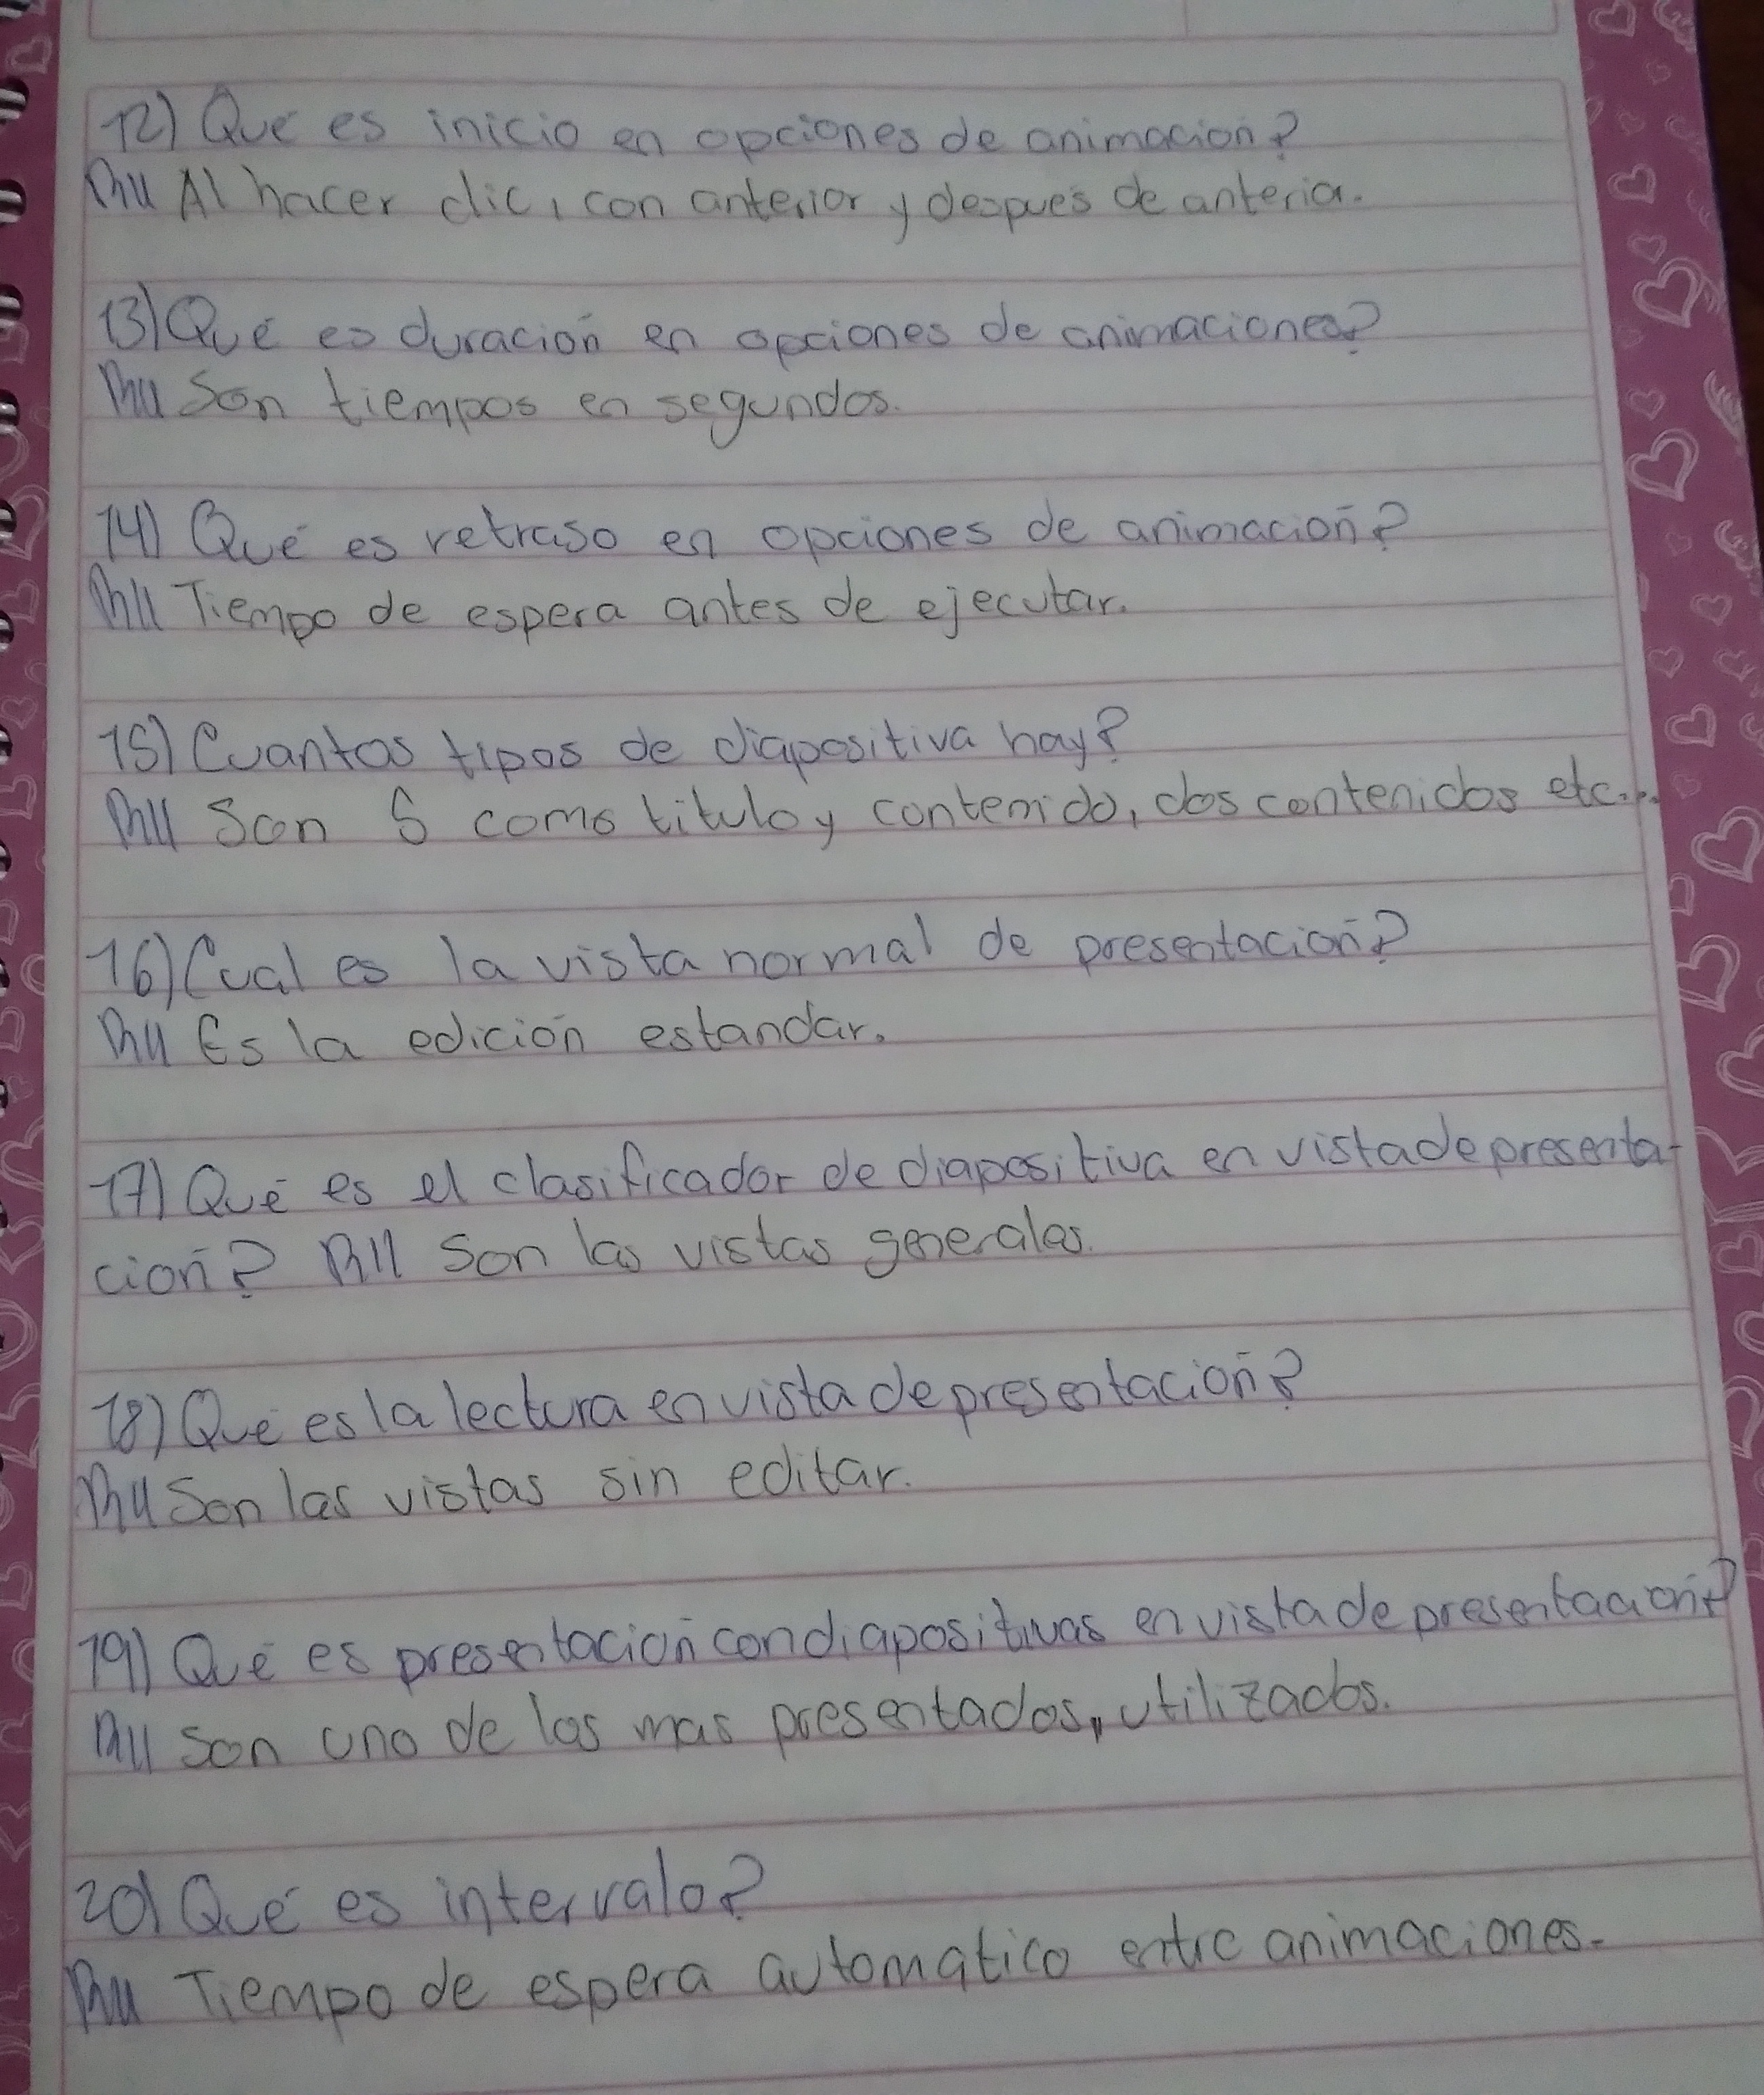 12) Qué es inicio en opciones de animación?
R// Al hacer clic, con anterior y después de anterior.
13) Qué es duración en opciones de animaciones?
R// Son tiempos en segundos.
14) Qué es retraso en opciones de animación?
R// Tiempo de espera antes de ejecutar.
15) Cuantos tipos de diapositiva hay?
R// Son 5 como titulo y contenido, dos contenidos etc...
16) Cual es la vista normal de presentación?
R// Es la edición estandar.
17) Qué es el clasificador de diapositiva en vista de presenta-
ción? R// Son las vistas generales.
18) Qué es la lectura en vista de presentación?
R// Son las vistas sin editar.
19) Qué es presentación con diapositivas en vista de presentación?
R// Son uno de los mas presentados, utilizados.
20) Qué es intervalo?
R// Tiempo de espera automatico entre animaciones.